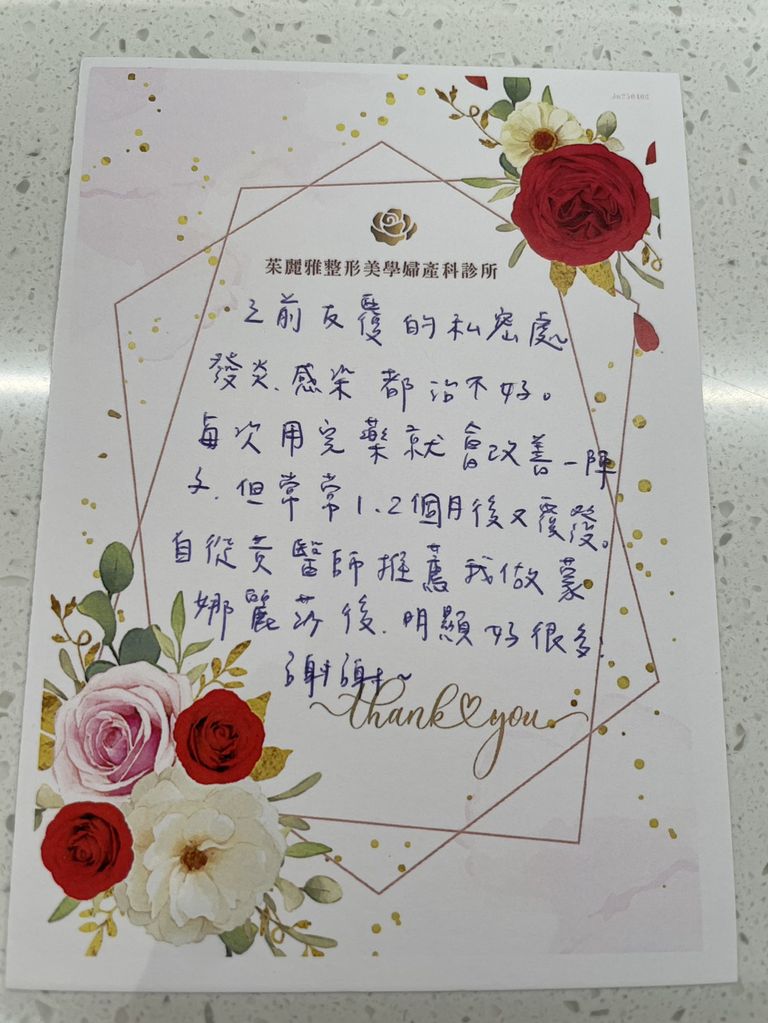 Ju250402
茱麗雅整形美學婦產科診所
之前反覆的私密處
發炎、感染都治不好。
每次用完藥就會改善一陣
子,但常常1、2個月後又覆發。
自從黃醫師推薦我做蒙
娜麗莎後,明顯好很多!
謝謝~
thank you